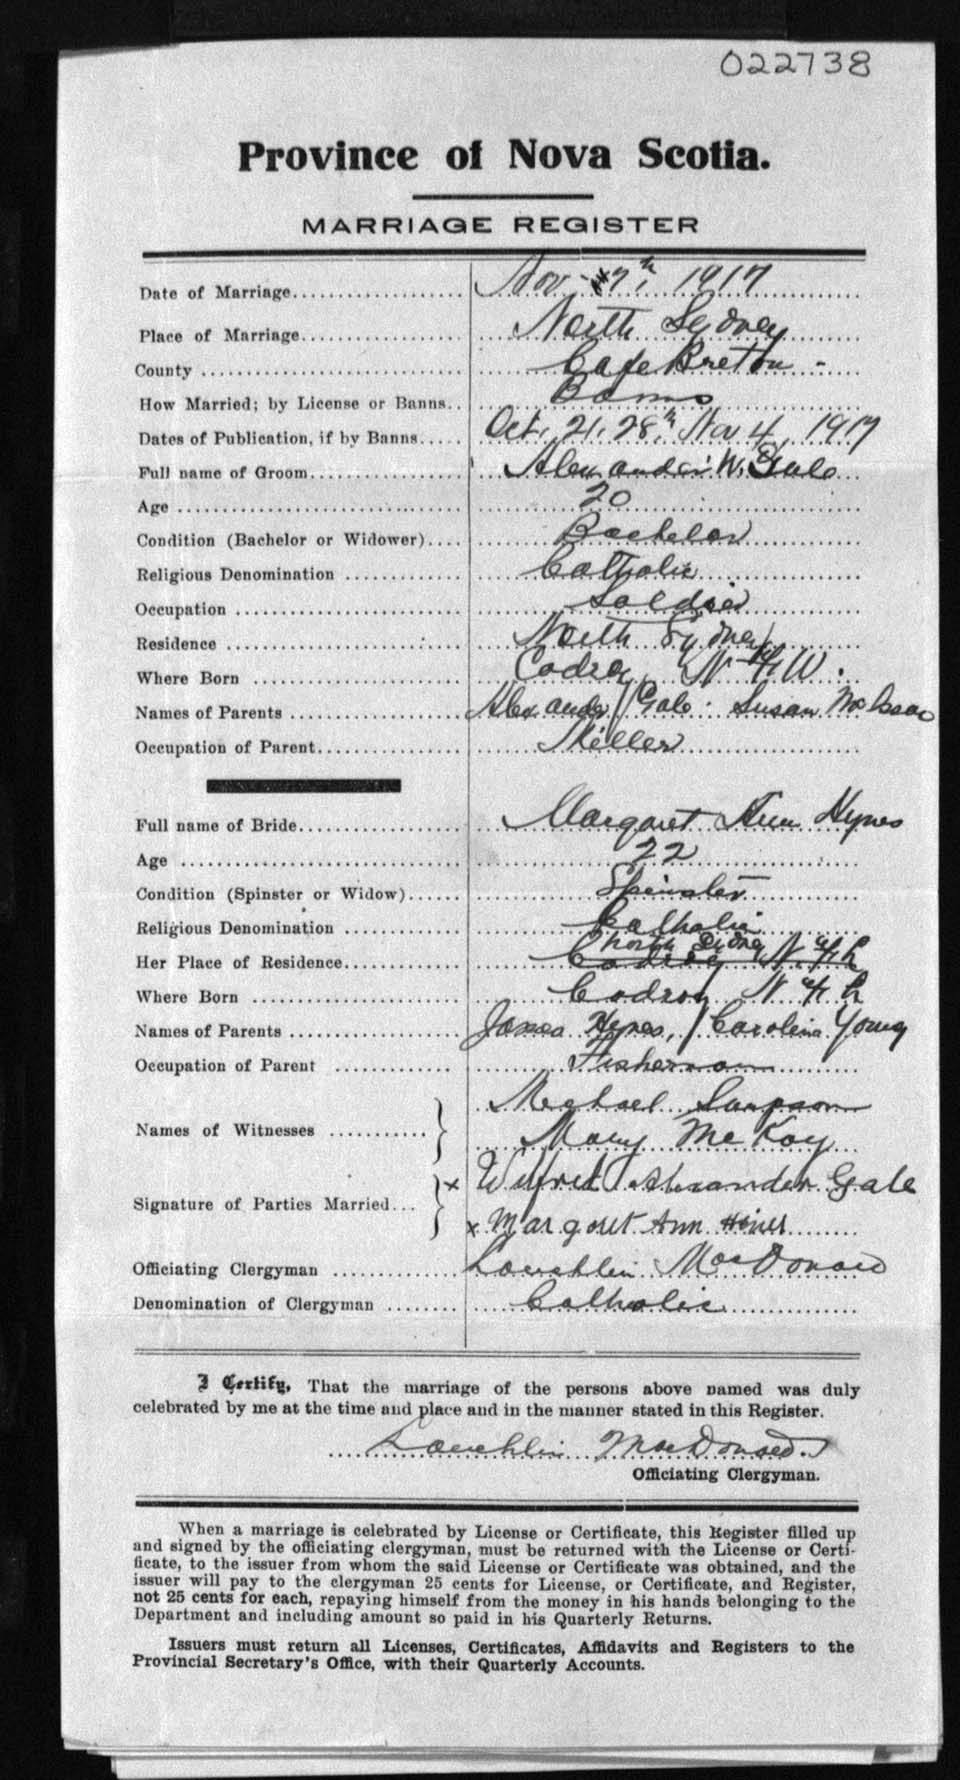 022738
Province of Nova Scotia.
MARRIAGE REGISTER
Date of Marriage Nov 7th, 1917
Place of Marriage North Sydney
County Cape Breton -
How Married; by License or Banns Banns
Dates of Publication, if by Banns Oct, 21, 28th, Nov 4, 1917
Full name of Groom Alexander W. Gale
Age 20
Condition (Bachelor or Widower) Bachelor
Religious Denomination Catholic
Occupation Soldier
Residence North Sydney
Where Born Codroy
Names of Parents Alexander / Gale. Susan McIsaac
Occupation of Parent Miller
Full name of Bride Margaret Ann Hynes
Age 22
Condition (Spinster or Widow) Spinster
Religious Denomination Catholic
Her Place of Residence North Sydney
Where Born Codroy
Names of Parents James Hynes, / Carolina Young
Occupation of Parent Fisherman
Names of Witnesses Michael Sampson
Mary McKay
Signature of Parties Married x Wilfred Alexander Gale
x Margaret Ann Hines
Officiating Clergyman Lauchlin MacDonald
Denomination of Clergyman Catholic
I Certify, That the marriage of the persons above named was duly
celebrated by me at the time and place and in the manner stated in this Register.
Lauchlin MacDonald.
Officiating Clergyman.
When a marriage is celebrated by License or Certificate, this Register filled up
and signed by the officiating clergyman, must be returned with the License or Certi-
ficate, to the issuer from whom the said License or Certificate was obtained, and the
issuer will pay to the clergyman 25 cents for License, or Certificate, and Register,
not 25 cents for each, repaying himself from the money in his hands belonging to the
Department and including amount so paid in his Quarterly Returns.
Issuers must return all Licenses, Certificates, Affidavits and Registers to the
Provincial Secretary's Office, with their Quarterly Accounts.